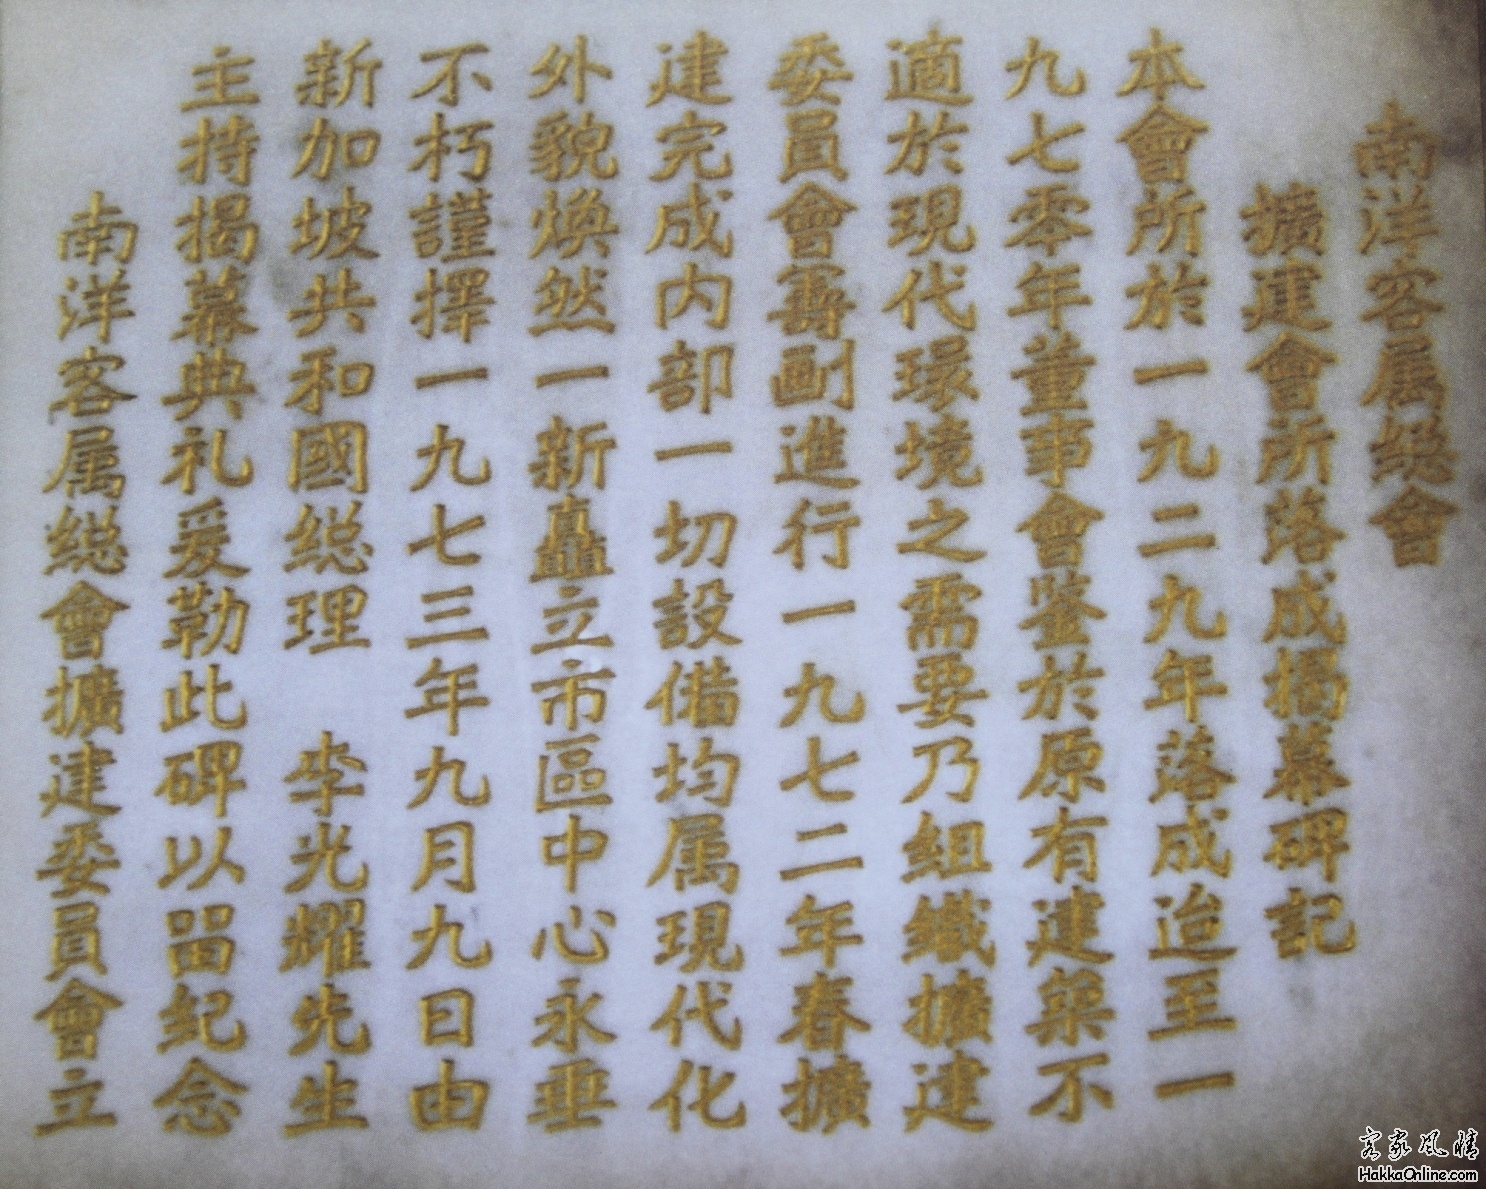 南洋客属總會
擴建會所落成揭幕碑記
本會所於一九二九年落成迨至一
九七零年董事會鑒於原有建築不
適於現代環境之需要乃組織擴建
委員會籌劃進行一九七二年春擴
建完成内部一切設備均属現代化
外貌煥然一新矗立市區中心永垂
不朽謹擇一九七三年九月九日由
新加坡共和國総理 李光耀先生
主持揭幕典礼爰勒此碑以留紀念
南洋客属総會擴建委員會立
客家風情
HakkaOnline.com